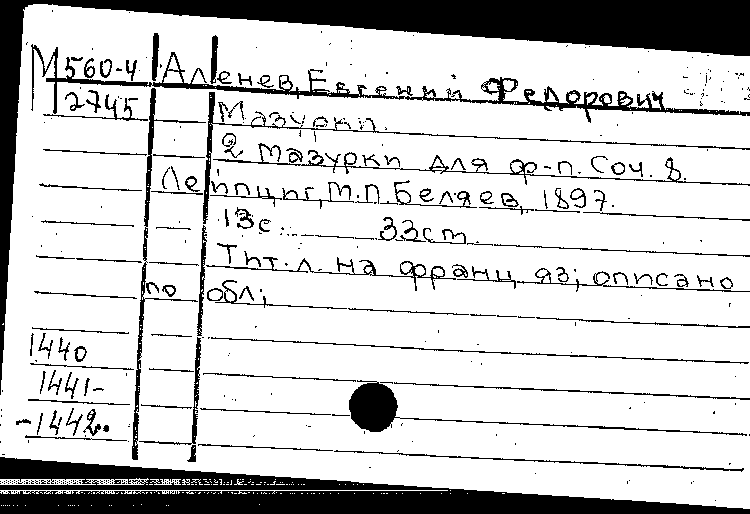 М 560-4 Аленев, Евгений Федорович
2745 Мазурки.
2 мазурки для ф-п. Соч. 8.
Лейпциг, М.П. Беляев, 1897.
13с. 33см.
Тит. л. на франц. яз; описано
по обл;
1440
1441-
-1442..